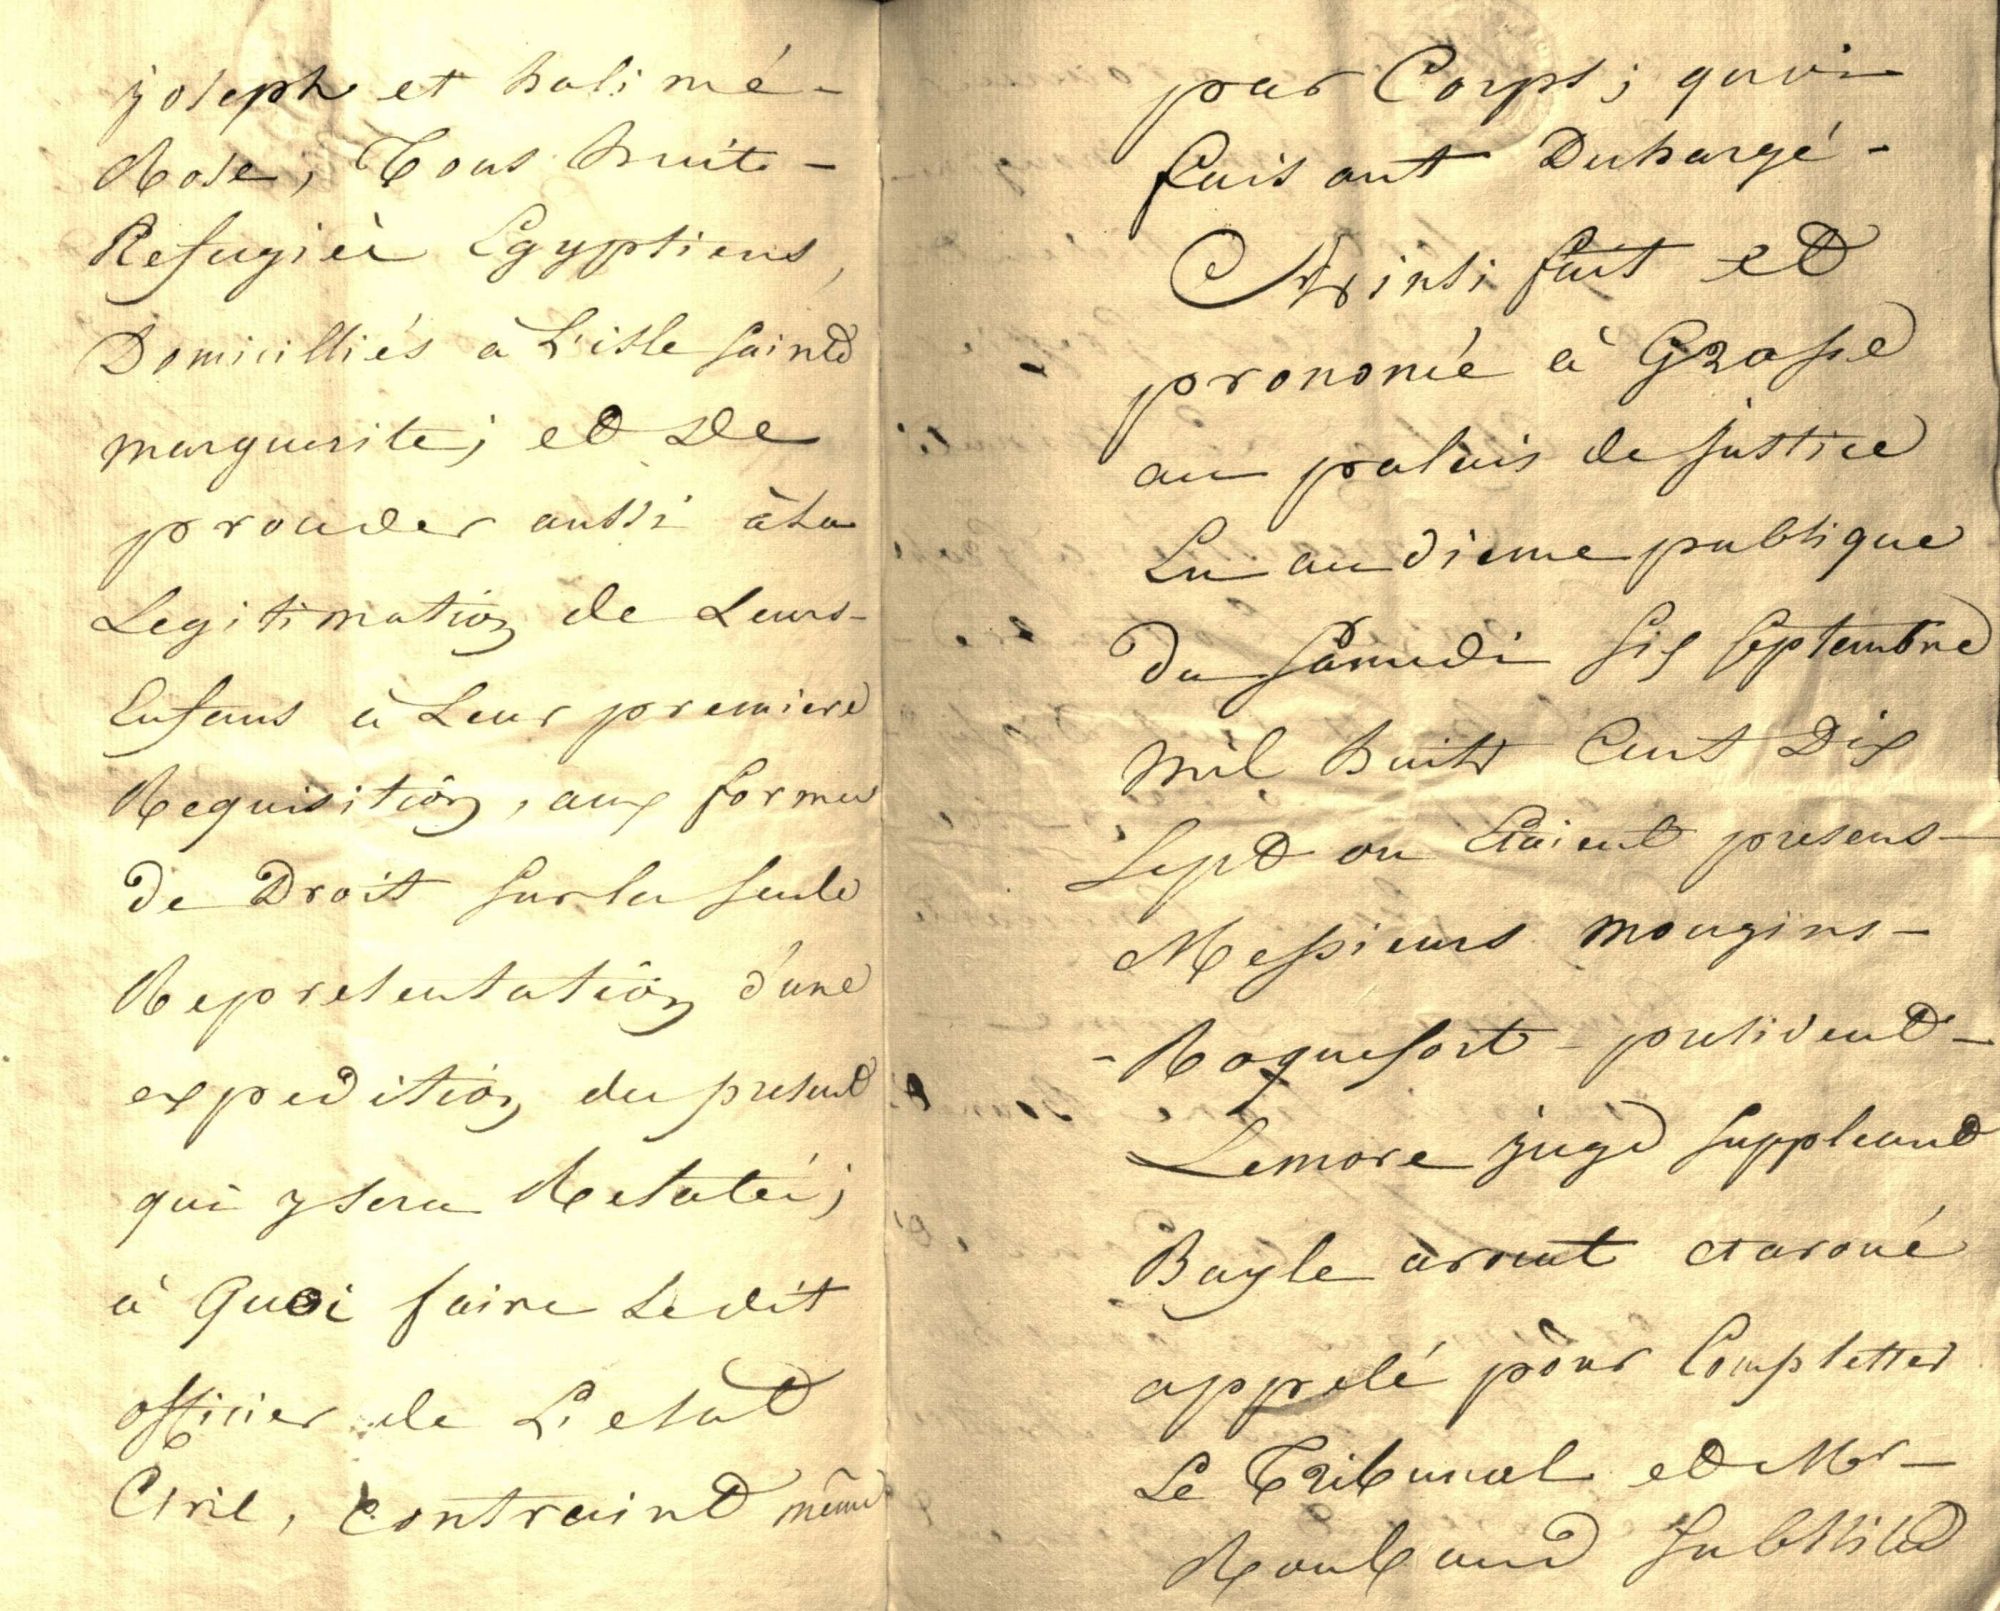 joseph et halimé-
Rose, Tous huit-
Refugiés Egyptiens,
Domicilliés a L'isle Saint
marguerite; et de
proceder aussi à La
Legitimation de Leurs-
Enfans à Leur premiere
Requisition, aux formes
de Droit sur la seule
Representation d'une
expedition du present
qui y sera Relaté;
à Quoi faire Ledit
officier de L'etat
Civil, contraint même
par Corps; quoi
faisant Dechargé-
Ainsi fait et
prononcé à Grasse
au palais de justice
En audience publique
du Samedi six septembre
mil huit Cent Dix
Sept ou Etaient presens-
Messieurs mougins-
-Roquefort-president-
Lemore juge suppleant
Bayle avocat et avoué
appelé pour Completter
Le Tribunal et Mr-
Roubaud Substitut